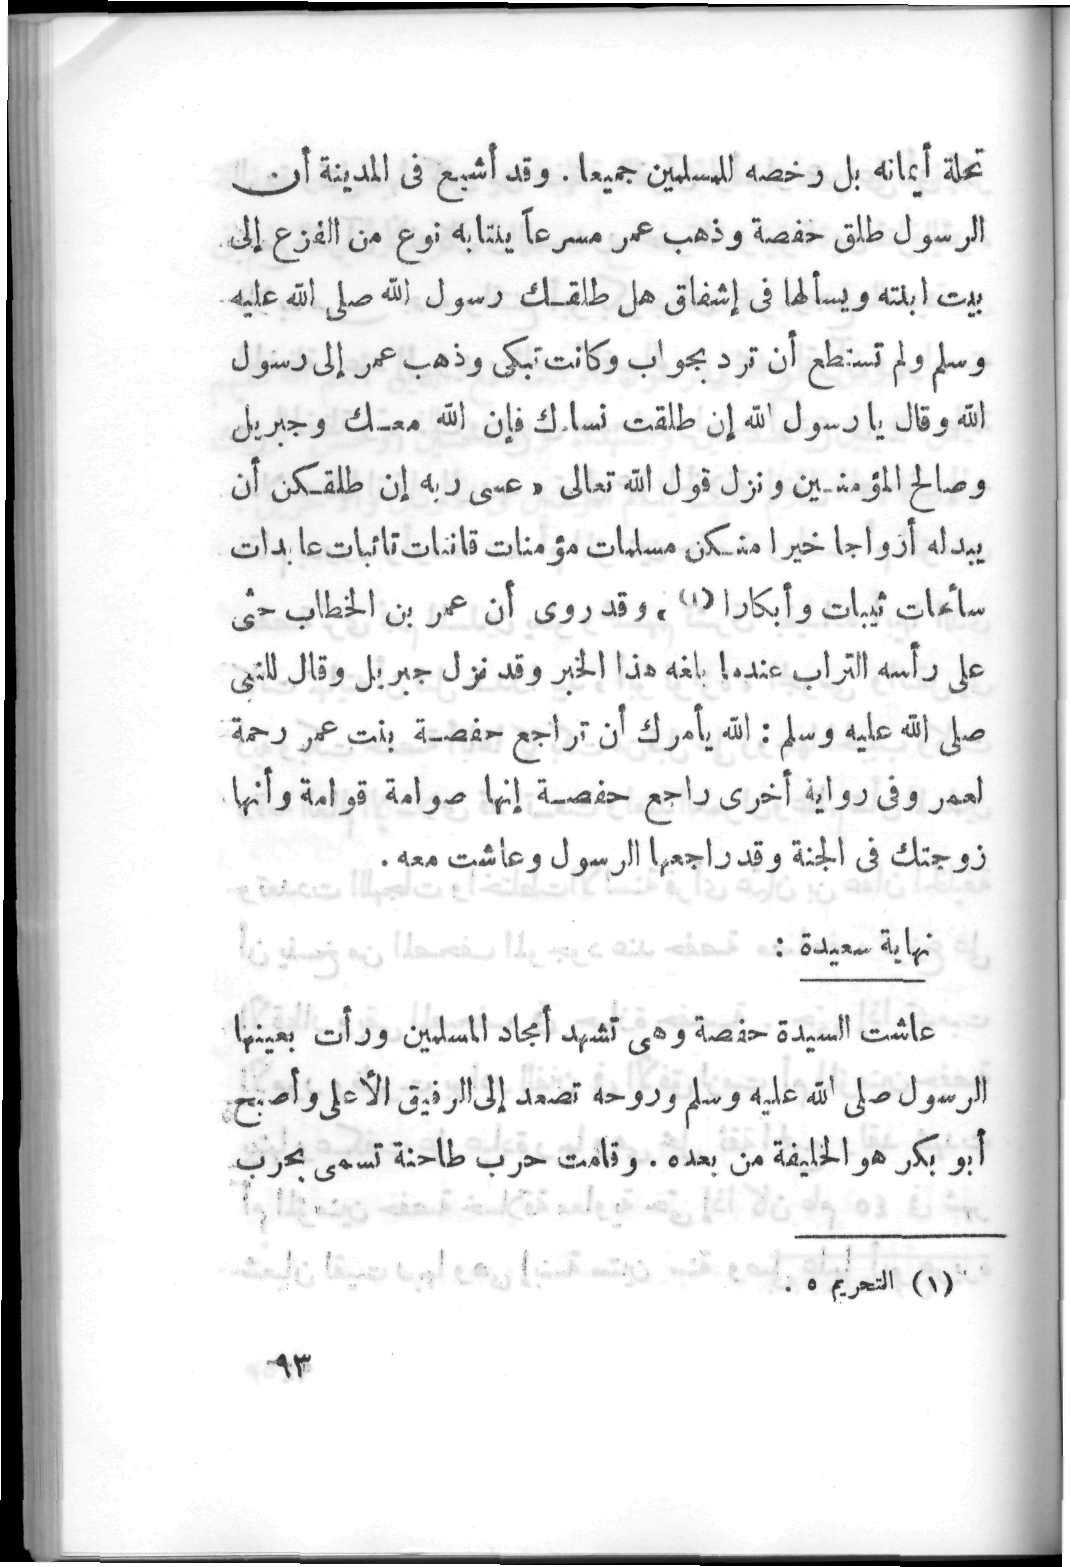 تحلة أيمانه بل رخصه للمسلمين جميعا . وقد أشيع فى المدينة أن
الرسول طلق حفصة وذهب عمر مسرعاً ينتابه نوع من الفزع إلى
بيت ابنته ويسألها فى إشفاق هل طلقك رسول الله صلى الله عليه
وسلم ولم تستطع أن ترد بجواب وكانت تبكى وذهب عمر إلى رسول
الله وقال يا رسول الله إن طلقت نساءك فإن الله معك وجبريل
وصالح المؤمنين ونزل قول الله تعالى « عسى ربه إن طلقكن أن
يبدله أزواجا خيرا منكن مسلمات مؤمنات قانتات تائبات عابدات
سائحات ثيبات وأبكارا (١) » وقد روى أن عمر بن الخطاب حثى
على رأسه التراب عندما بلغه هذا الخبر وقد نزل جبريل وقال للنبى
صلى الله عليه وسلم : الله يأمرك أن تراجع حفصة بنت عمر رحمة
لعمر وفى رواية أخرى راجع حفصة إنها صوامة قوامة وأنها
زوجتك فى الجنة وقد راجعها الرسول وعاشت معه .
نهاية سعيدة :
عاشت السيدة حفصة وهى تشهد أمجاد المسلمين ورأت بعينها
الرسول صلى الله عليه وسلم وروحه تصعد إلى الرفيق الأعلى وأصبح
أبو بكر هو الخليفة من بعده . وقامت حرب طاحنة تسمى بحرب
(١) التحريم ٥ .
٩٣